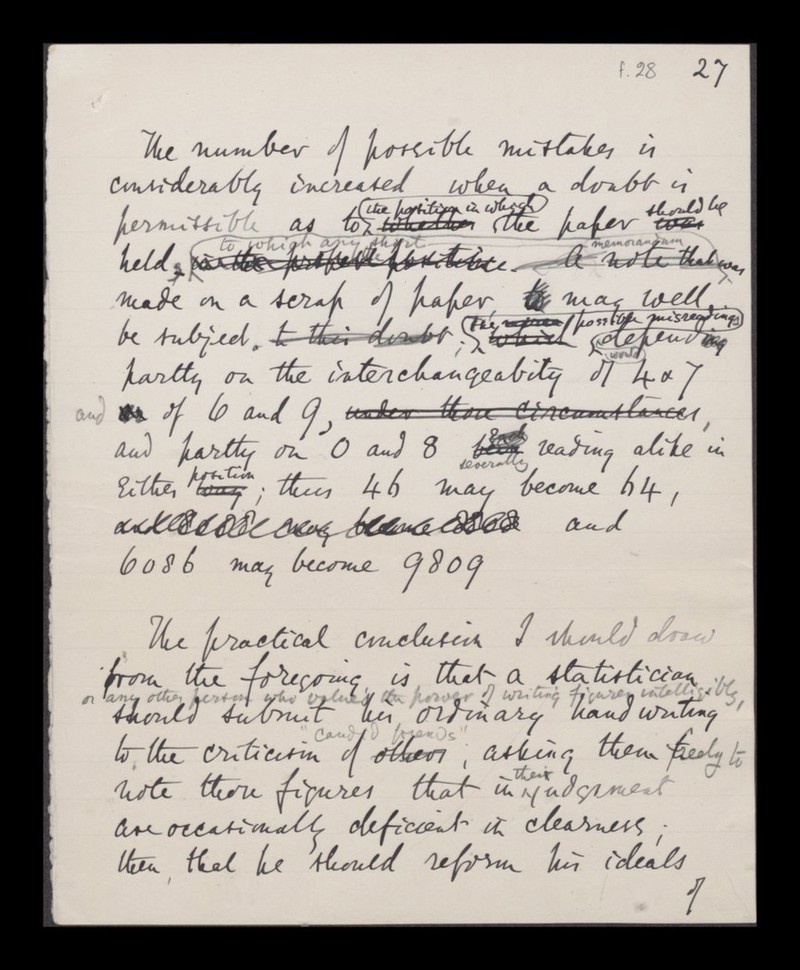 f. 28 27
The number of possible mistakes is
considerably increased when a doubt is
the position in which should be
permissible as to whether the paper was
to which any short memorandum
held, in the proper position. A note that was
made on a scrap of paper, may well
The possible misreadings
be subject. to this doubt; which depending
would
partly on the interchangeabity of 4 & 7
and of 6 and 9, under those circumstances,
and partly on 0 and 8 reading alike in
severally
position
Either way; thus 46 may become 64,
and may become and
6086 may become 9809
The practical conclusion I should draw
from the foregoing is that a statistician
or any other person who values the power of writing figures intelligibly,
should submit his ordinary handwriting
"candid friends"
to the criticism of others, asking them freely to
their
note those figures that in judgment
are occasionally deficient in clearness;
then, that he should reform his ideals
of